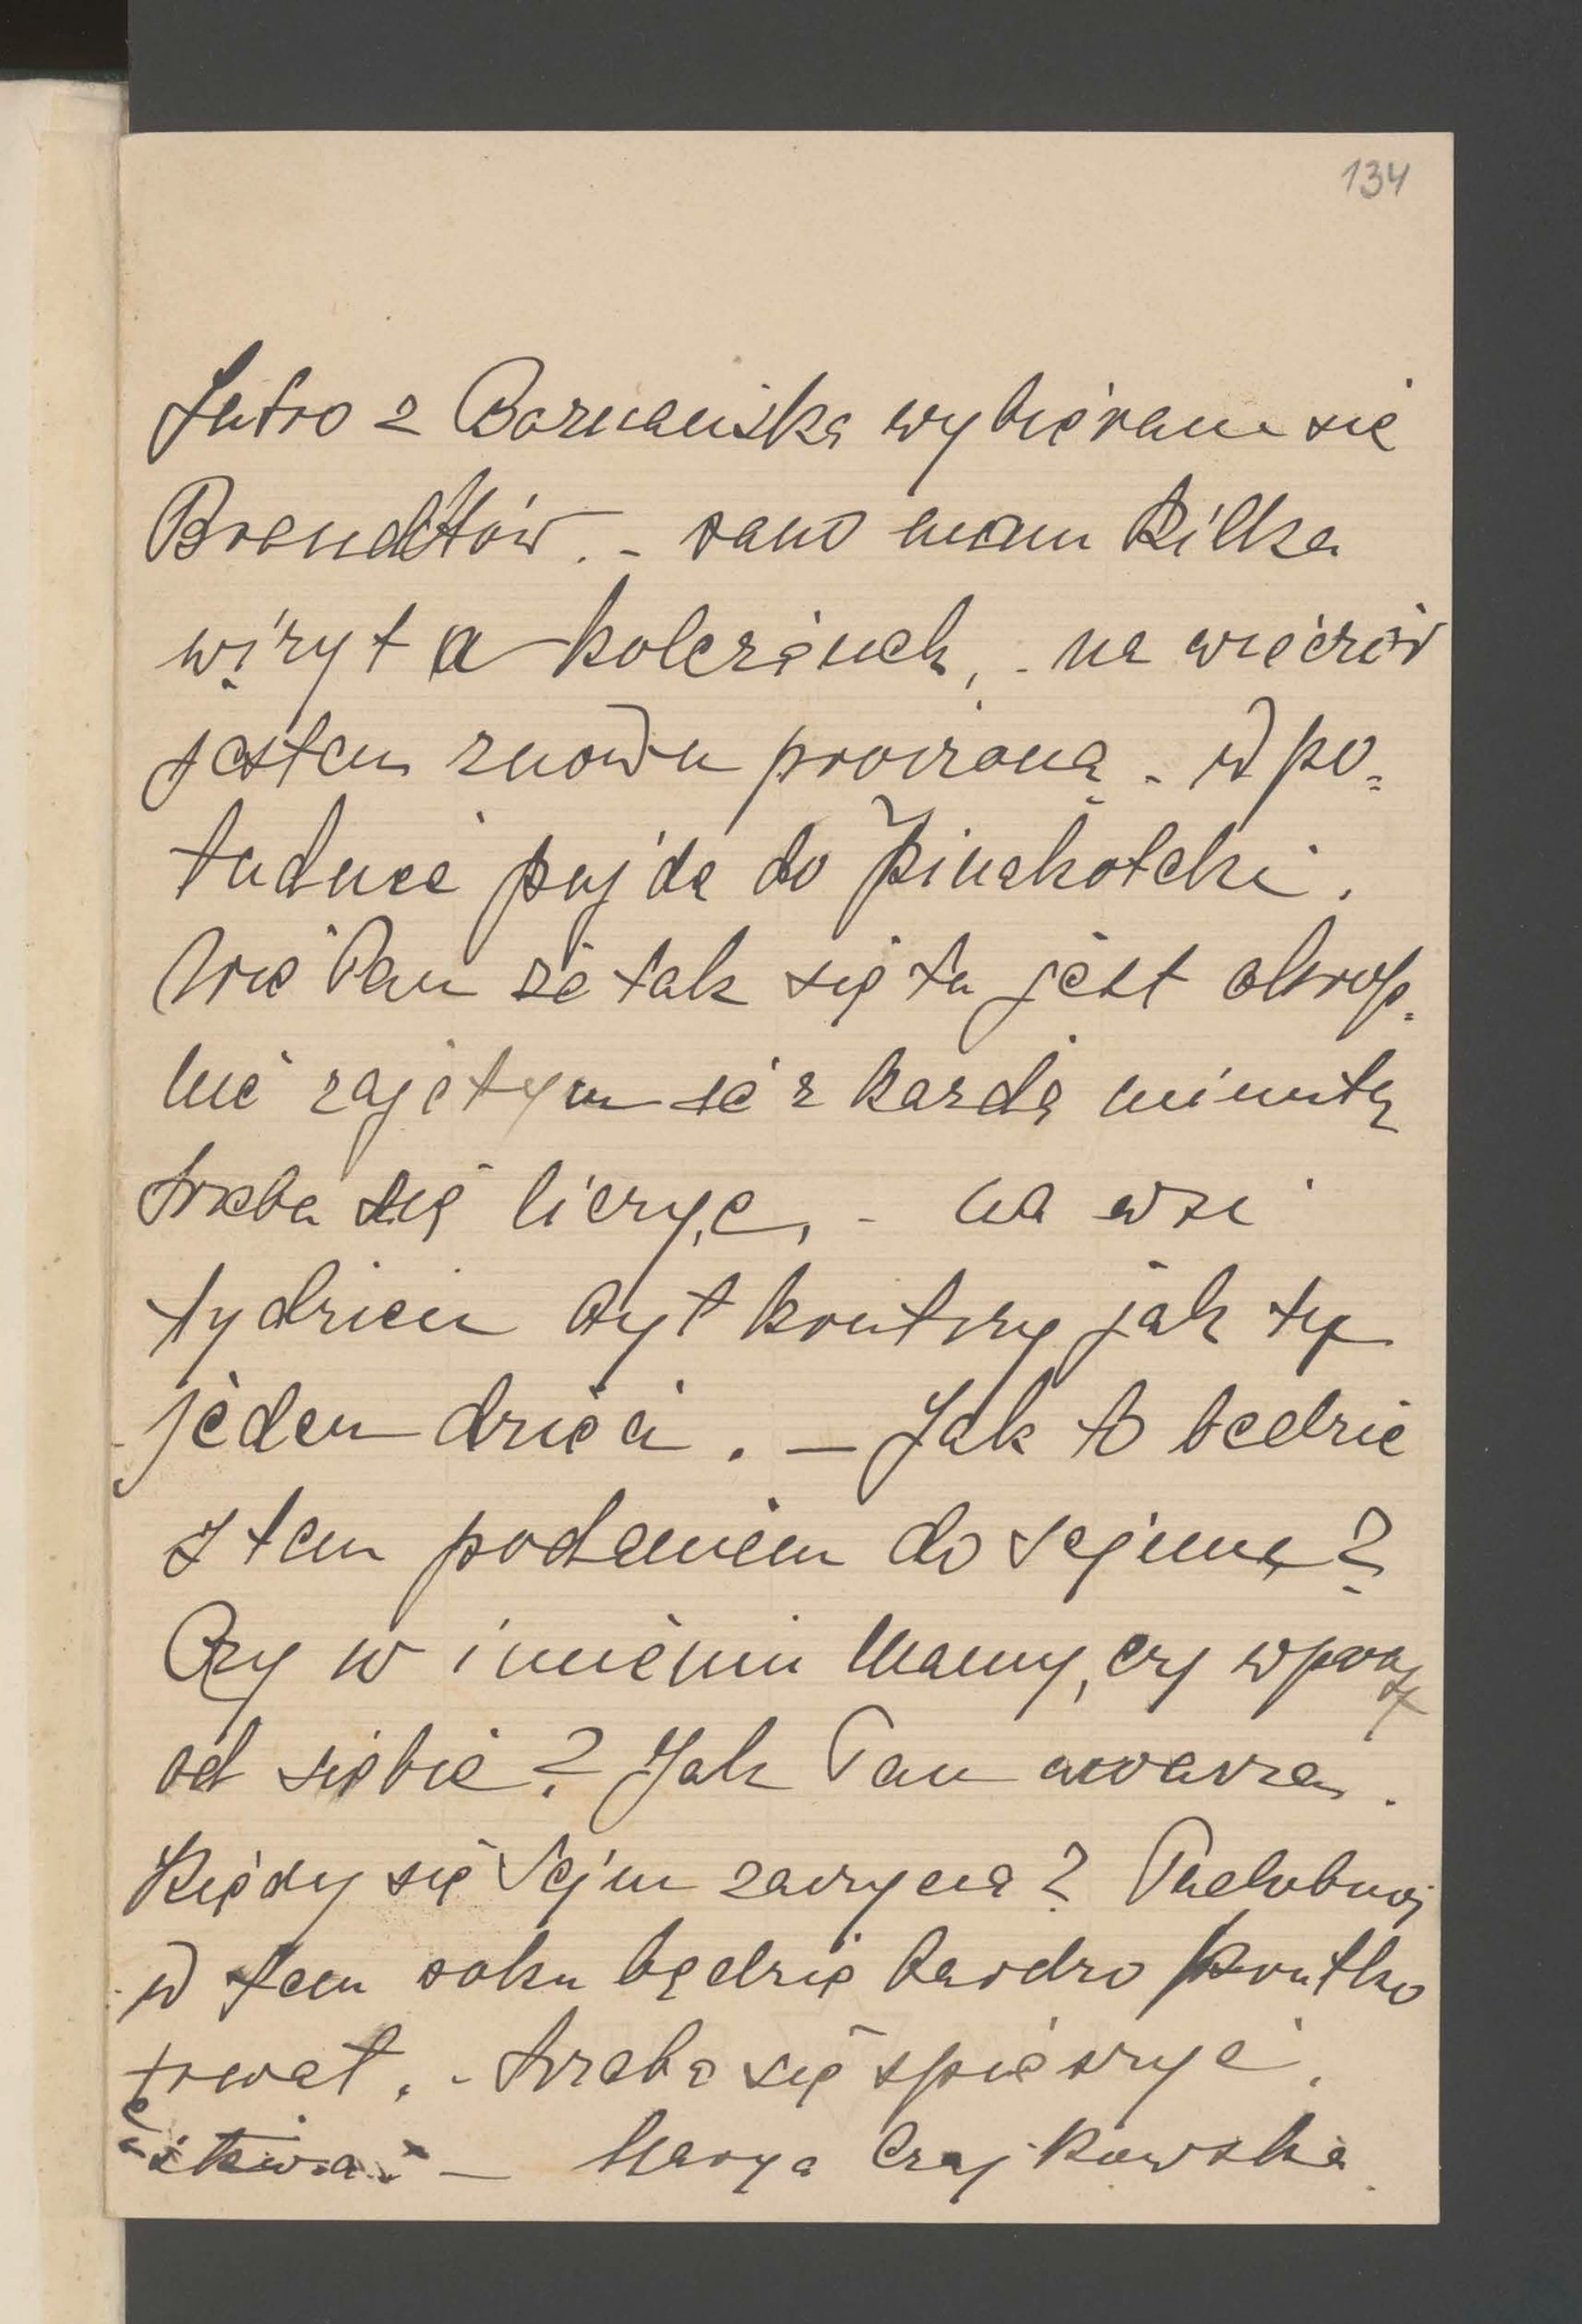 134
Jutro z Boznańską wybieram się
Brandtów. - rano mam kilka
wizyt a koleżanek, - na wieczór
jestem znowu proszoną - w po=
łudnie pujdę do Pinakoteki.
Wie Pan że tak się tu jest okrop=
nie zajętym że z każdą minutą
trzeba się liczyć, - na wsi
tydzień był krutszy jak tu
jeden dzień. - Jak to będzie
z tem podaniem do sejmu?
Czy w imieniu Mamy, czy wprost
od siebie? Jak Pan uważa.
Kiedy się Sejm zaczyna? Podobnoj
w tem roku będzie bardzo krutko
trwał. - trzeba się spieszyć.
Marya Czajkowska